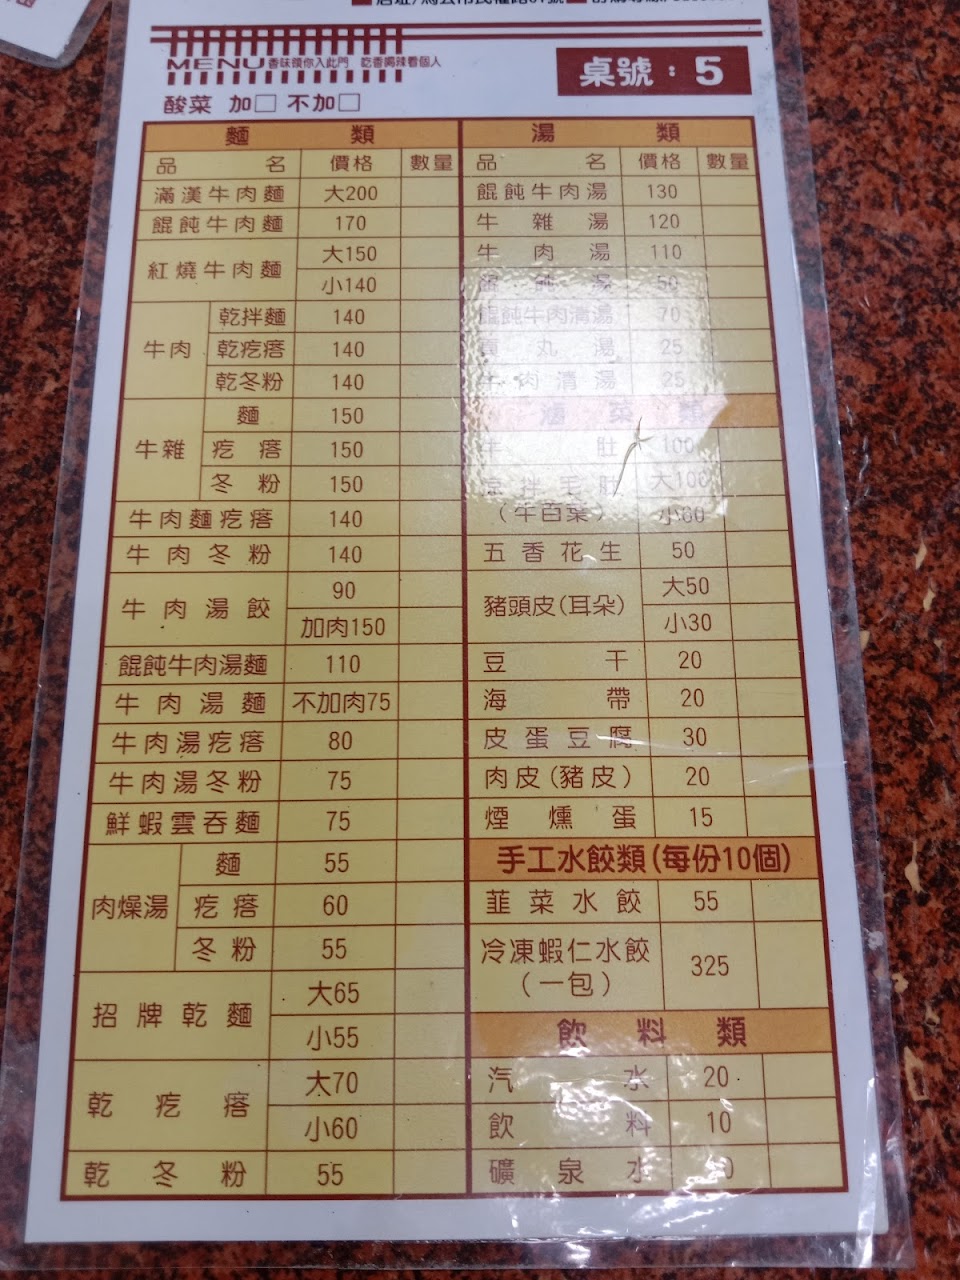 MENU 香味領你入此門 吃香喝辣看個人
桌號：5
酸菜 加□ 不加□
麵類
品名 價格 數量
滿漢牛肉麵 大200
餛飩牛肉麵 170
紅燒牛肉麵 大150
小140
牛肉 乾拌麵 140
乾疙瘩 140
乾冬粉 140
牛雜 麵 150
疙瘩 150
冬粉 150
牛肉麵疙瘩 140
牛肉冬粉 140
牛肉湯餃 90
加肉150
餛飩牛肉湯麵 110
牛肉湯麵 不加肉75
牛肉湯疙瘩 80
牛肉湯冬粉 75
鮮蝦雲吞麵 75
肉燥湯 麵 55
疙瘩 60
冬粉 55
招牌乾麵 大65
小55
乾疙瘩 大70
小60
乾冬粉 55
湯類
品名 價格 數量
餛飩牛肉湯 130
牛雜湯 120
牛肉湯 110
餛飩湯 50
餛飩牛肉清湯 70
貢丸湯 25
牛肉清湯 25
滷菜類
牛肚 100
涼拌毛肚 大100
（牛百葉） 小60
五香花生 50
豬頭皮(耳朵) 大50
小30
豆干 20
海帶 20
皮蛋豆腐 30
肉皮(豬皮) 20
煙燻蛋 15
手工水餃類(每份10個)
韮菜水餃 55
冷凍蝦仁水餃 325
（一包）
飲料類
汽水 20
飲料 10
礦泉水